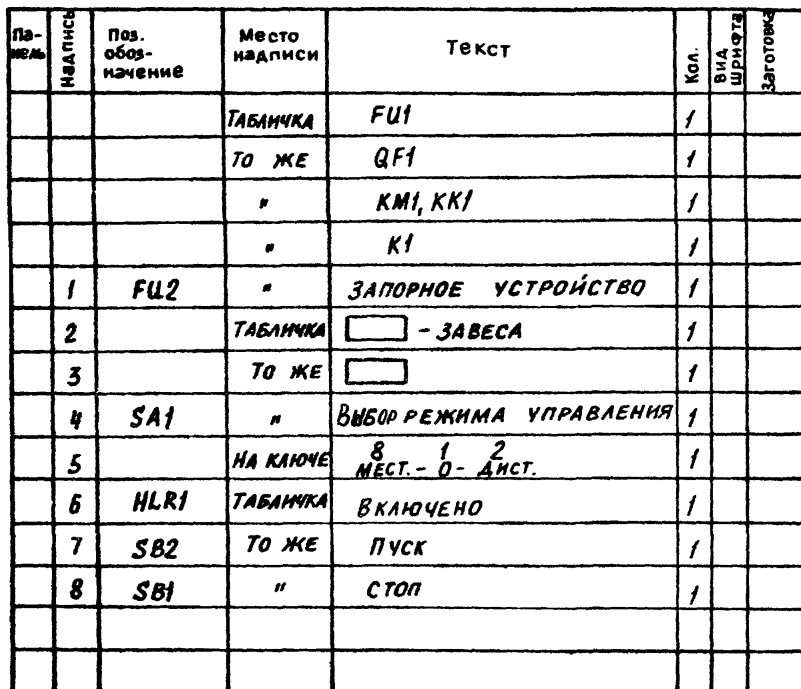 Па-
нель
Надпись
Поз.
обоз-
начение
Место
надписи
Текст
Кол.
Вид
шрифта
Заготовка
ТАБЛИЧКА FU1 1
ТО ЖЕ QF1 1
" KM1, KK1 1
" K1 1
1 FU2 " ЗАПОРНОЕ УСТРОЙСТВО 1
2 ТАБЛИЧКА - ЗАВЕСА 1
3 ТО ЖЕ 1
4 SA1 " ВЫБОР РЕЖИМА УПРАВЛЕНИЯ 1
5 НА КЛЮЧЕ 8 1 2
МЕСТ. - 0 - ДИСТ. 1
6 HLR1 ТАБЛИЧКА ВКЛЮЧЕНО 1
7 SB2 ТО ЖЕ ПУСК 1
8 SB1 " СТОП 1